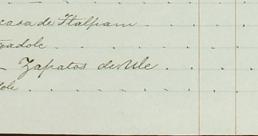 casa de Tlalpam
radole
— Zapatos de Ule
dole